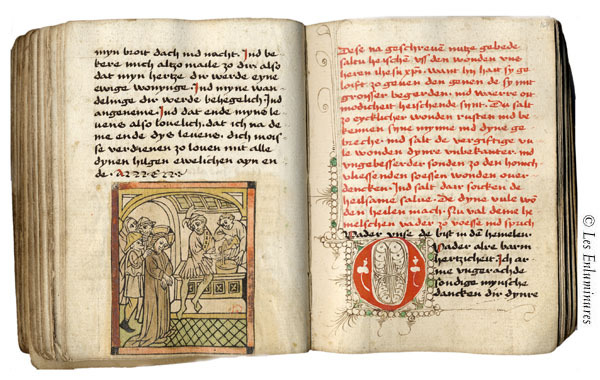 myn broit dach ind nacht. Ind be
kere mich altzo maile zo dir also
dat myn hertze dir werde eyne
ewige wonynge. Ind myne wan
delinge dir werde behegelich Ind
angeneme. Ind dat ende myns le
uens also louelich, dat ich na de
me ende dys leuens, dich mois
se verdienen zo louen mit alle
dynen hilgen ewelichen ayn en
de. A
Dese na geschreuen nutze gebede
saltu heischen vss den wonden vns
heren ihesu xpi. want hy hatt ge
loift zo geuen den genen de sy mit
groisser begerden. ind waerre ot
modicheit heischende synt. Du salt
zo eycklicher wonden rusten ind be
keinen syne mynne ind dyne ge
breche ind salt de vergiftige vu
le wonden dynre vnbekanter. ind
vngebesserder sonden zo den honich
vliessenden soessen wonden ouer
dencken. Ind salt dair soicken de
heilsame salue. De dyne vule wo
den heilen mach. Nu val deme he
melschen vader zo voesse ind sprich
Vader vnse de bist in den hemelen.
O Vader alre barm
hertzicheit. Ich ar
me vngerachde
sondige mynsche
dancken dir dynre
© Les Enluminures